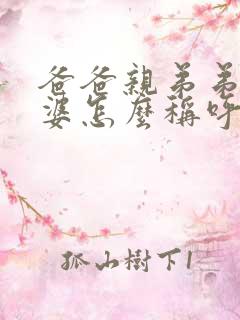 爸爸親弟弟
婆怎麼稱呼
孤山樹下1